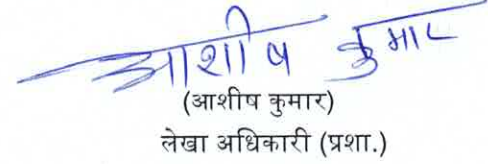 आशीष कुमार
(आशीष कुमार)
लेखा अधिकारी (प्रशा.)